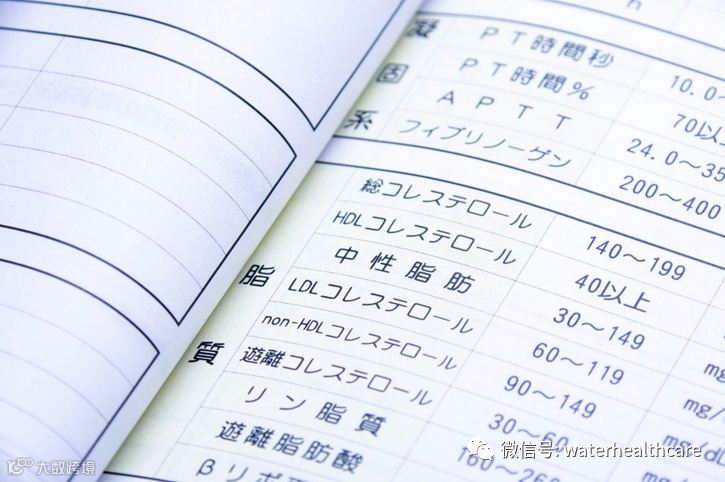 凝固系
PT時間秒 10.0~
PT時間% 70以
APTT 24.0~35
フィブリノーゲン 200~400
脂質
総コレステロール 140~199
HDLコレステロール 40以上
中性脂肪 30~149
LDLコレステロール 60~119 mg
non-HDLコレステロール 90~149 mg/
遊離コレステロール 30~60 mg/dL
リン脂質 160~260
遊離脂肪酸
βリポ
微信号: waterhealthcare
大数跨境